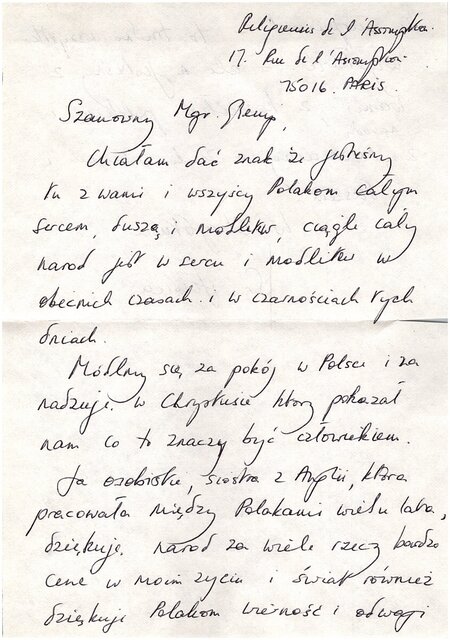 Religieuses de l'Assomption
17. Rue de l'Assomption
75016. PARIS.
Szanowny Mgr. Glemp,
Chciałam dać znak że jesteśmy
tu z wami i wszyscy Polakom całym
sercem, duszą i modlitw, ciągle cały
naród jest w sercu i modlitw w
obecnich czasach i w czarnościach tych
dniach.
Módlmy się za pokój w Polsce i za
nadzieję w Chrystusie który pokazał
nam co to znaczy być człowiekiem.
Ja osobiście, siostra z Anglii, która
pracowała między Polakami wielu lata,
dziękuję naród za wiele rzeczy bardzo
cene w moim życiu i świat również
dziękuję Polakom wierność i odwagi